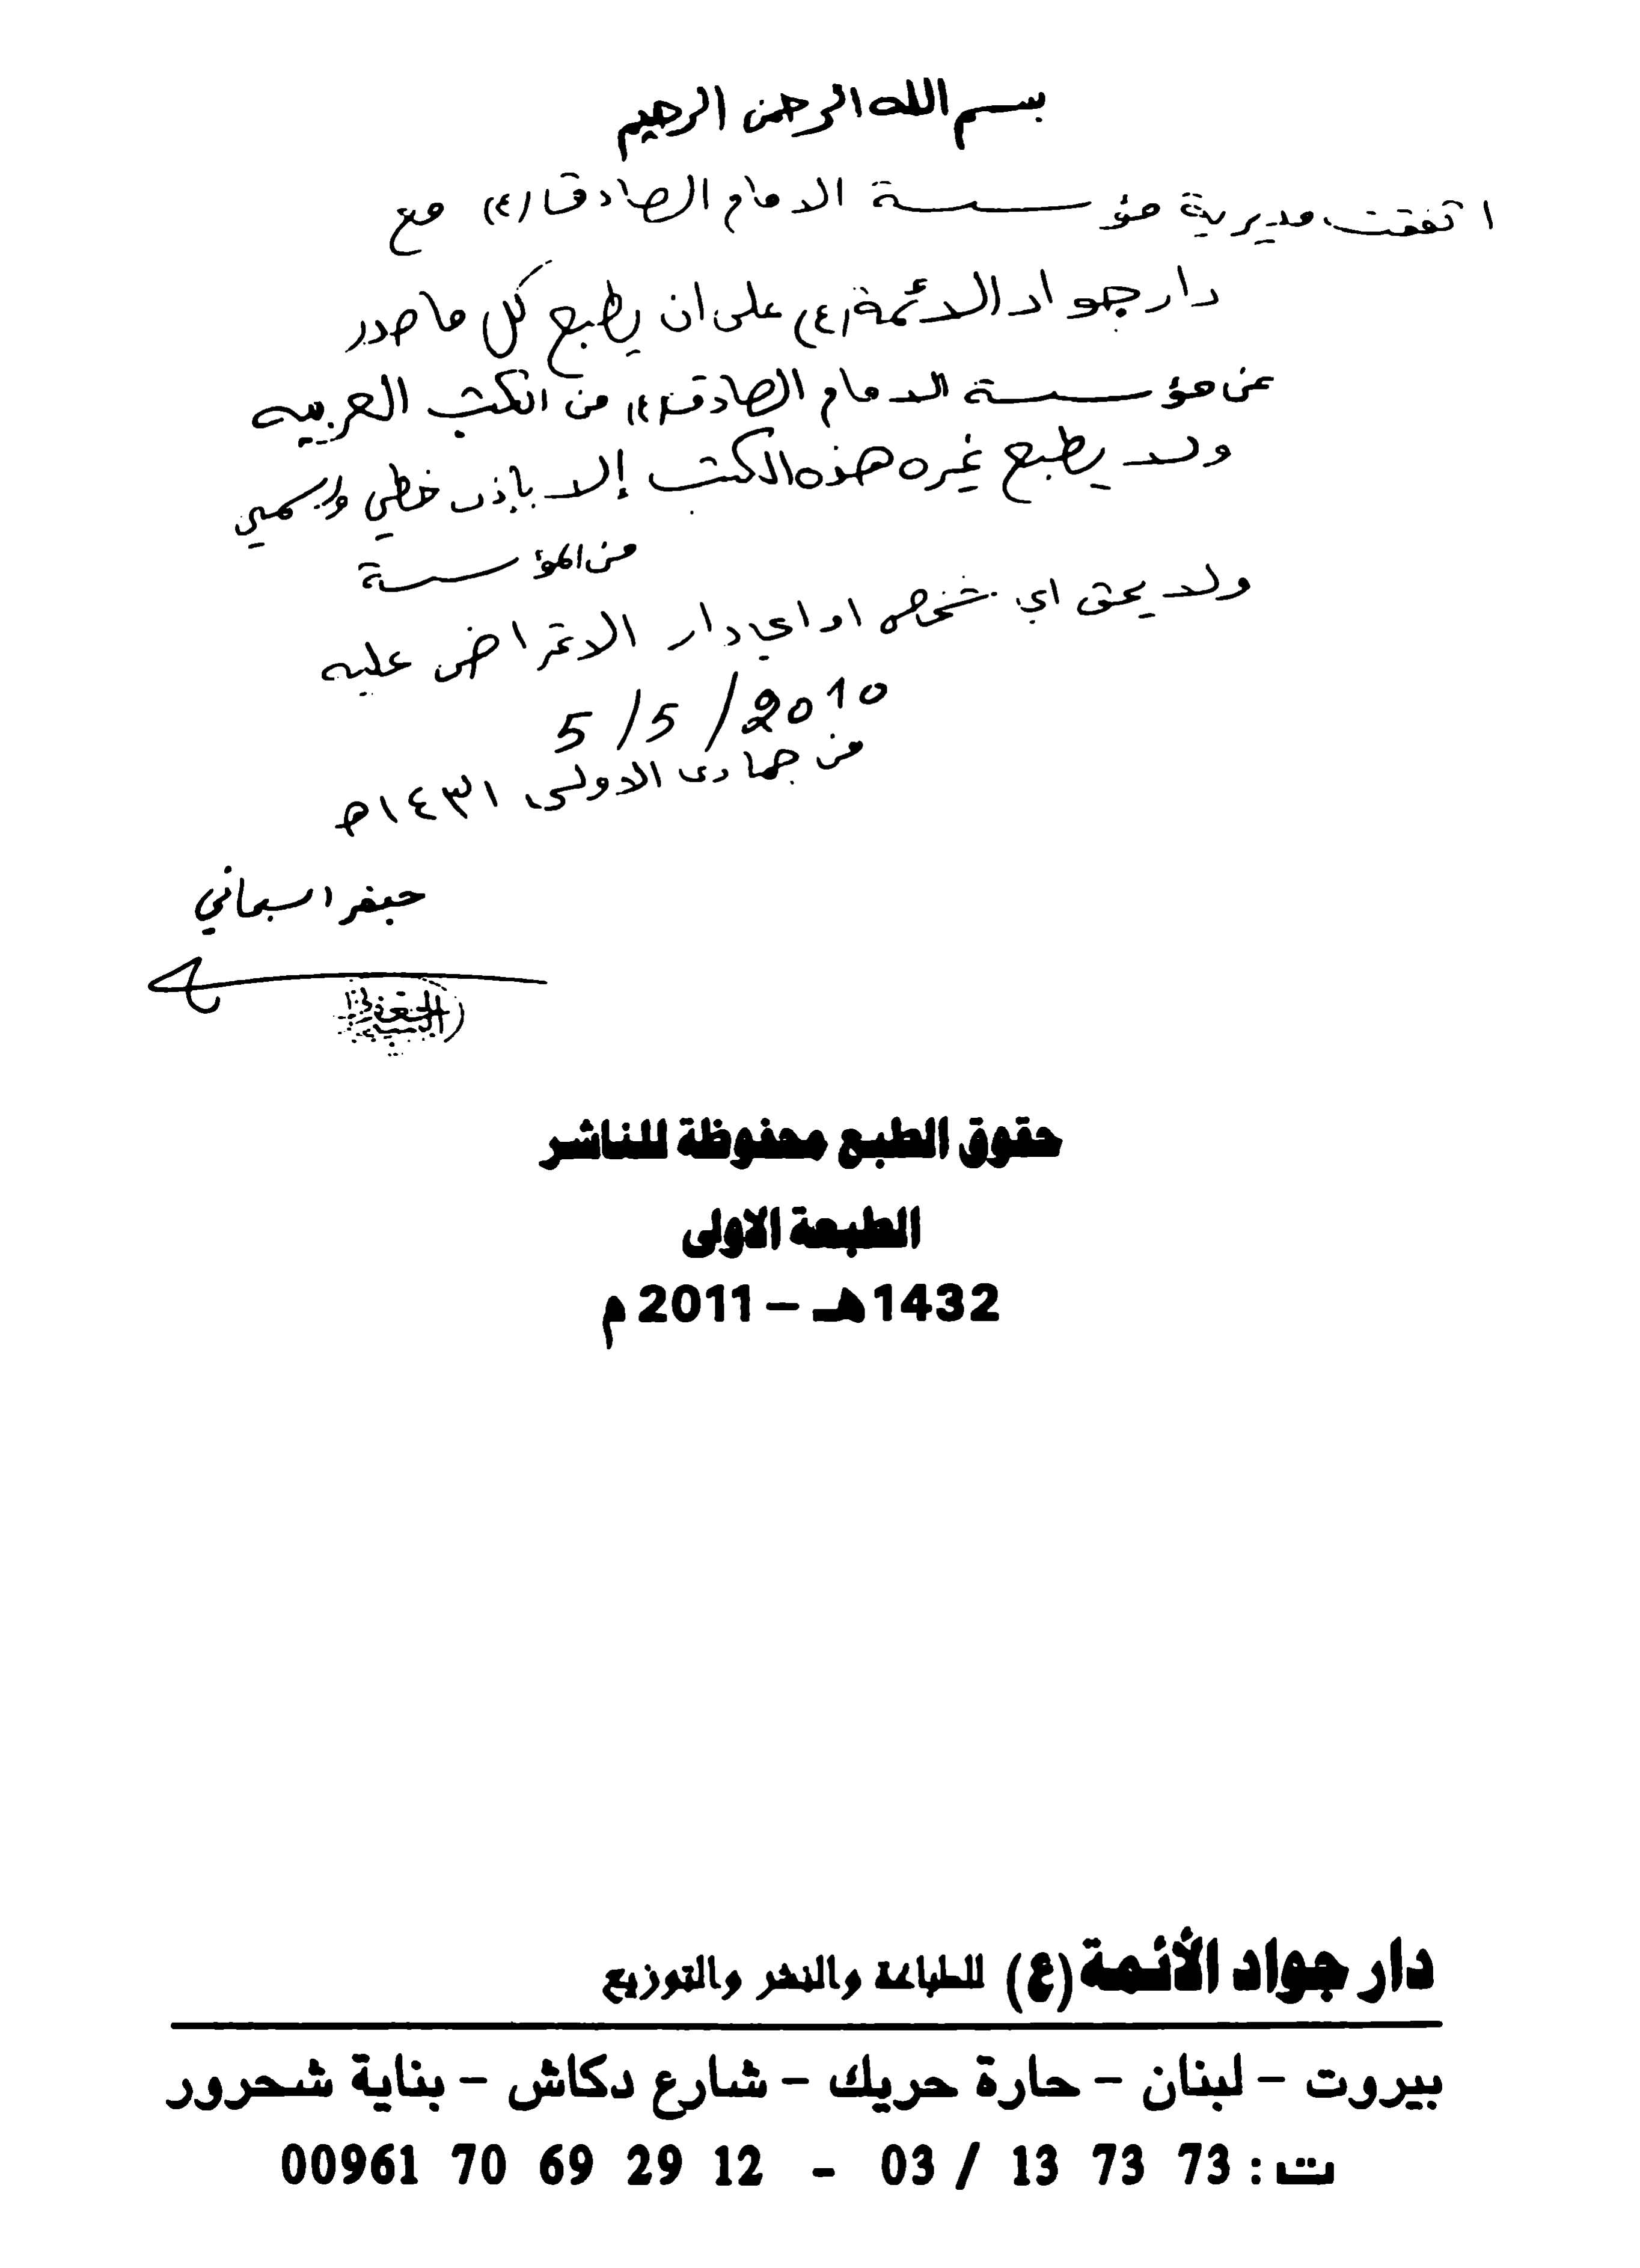 بسم الله الرحمن الرحيم
اتفقت مديرية مؤسسة الامام الصادق (ع) مع
دار جواد الائمة (ع) على ان يطبع كل ما صدر
عن مؤسسة الامام الصادق (ع) من الكتب العربيه
ولا يطبع غيره هذه الكتب إلا بإذن خطي ورسمي
من المؤسسة
ولا يحق اي شخص او اي دار الاعتراض عليه
5/5/2010
من جمادى الاولى ١٤٣١هـ
جعفر السبحاني
حقوق الطبع محفوظة للناشر
الطبعة الاولى
1432هـ – 2011م
دار جواد الأئمة (ع) للطباعة والنشر والتوزيع
بيروت – لبنان – حارة حريك – شارع دكاش – بناية شحرور
ت: 73 73 13 / 03 - 12 29 69 70 00961